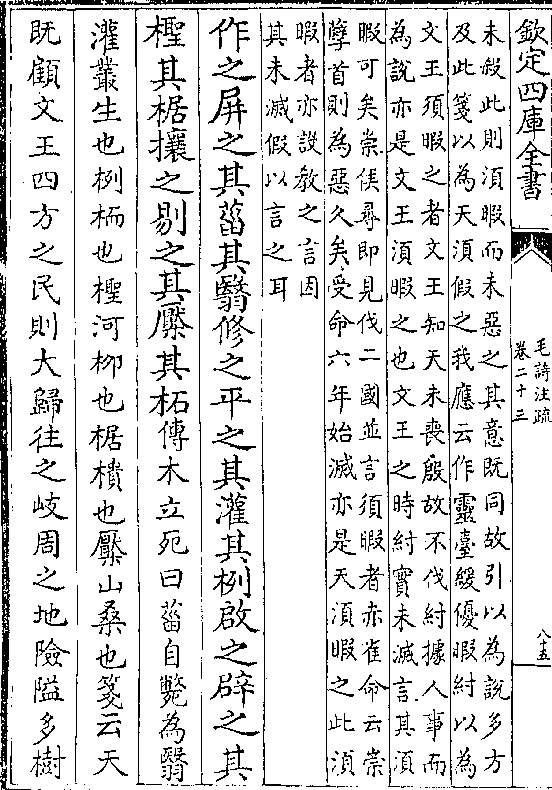 欽定四庫全書
毛詩注疏
卷二十三
八十五
未殺此則須暇而未惡之其意既同故引以為說多方
及此箋以為天須假之我應云作靈臺緩優暇紂以為
文王須暇之者文王知天未喪殷故不伐紂據人事而
為說亦是文王須暇之也文王之時紂實未滅言其須
暇可矣崇侯尋即見伐二國並言須暇者亦雀命云崇
孽首則為惡久矣受命六年始滅亦是天須暇之此須
暇者亦設教之言因
其未滅假以言之耳
作之屏之其菑其翳修之平之其灌其栵啟之辟之其
檉其椐攘之剔之其檿其柘傳木立死曰菑自斃為翳
灌叢生也栵栭也檉河柳也椐樻也檿山桑也箋云天
既顧文王四方之民則大歸往之岐周之地險隘多樹